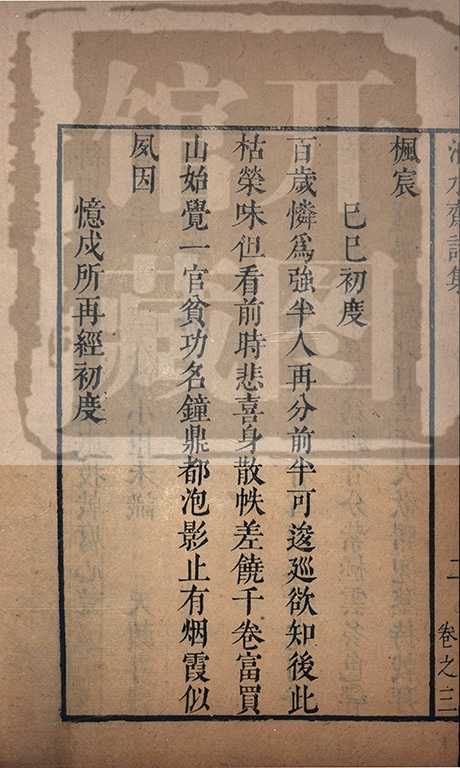 楓宸
己巳初度
百歲憐爲強半人再分前半可逡廵欲知後此
枯榮味但看前時悲喜身散帙差饒千卷富買
山始覺一官貧功名鐘鼎都泡影止有烟霞似
夙因
憶戍所再經初度
水齋詩集
二
卷之三
開
圖
館
藏